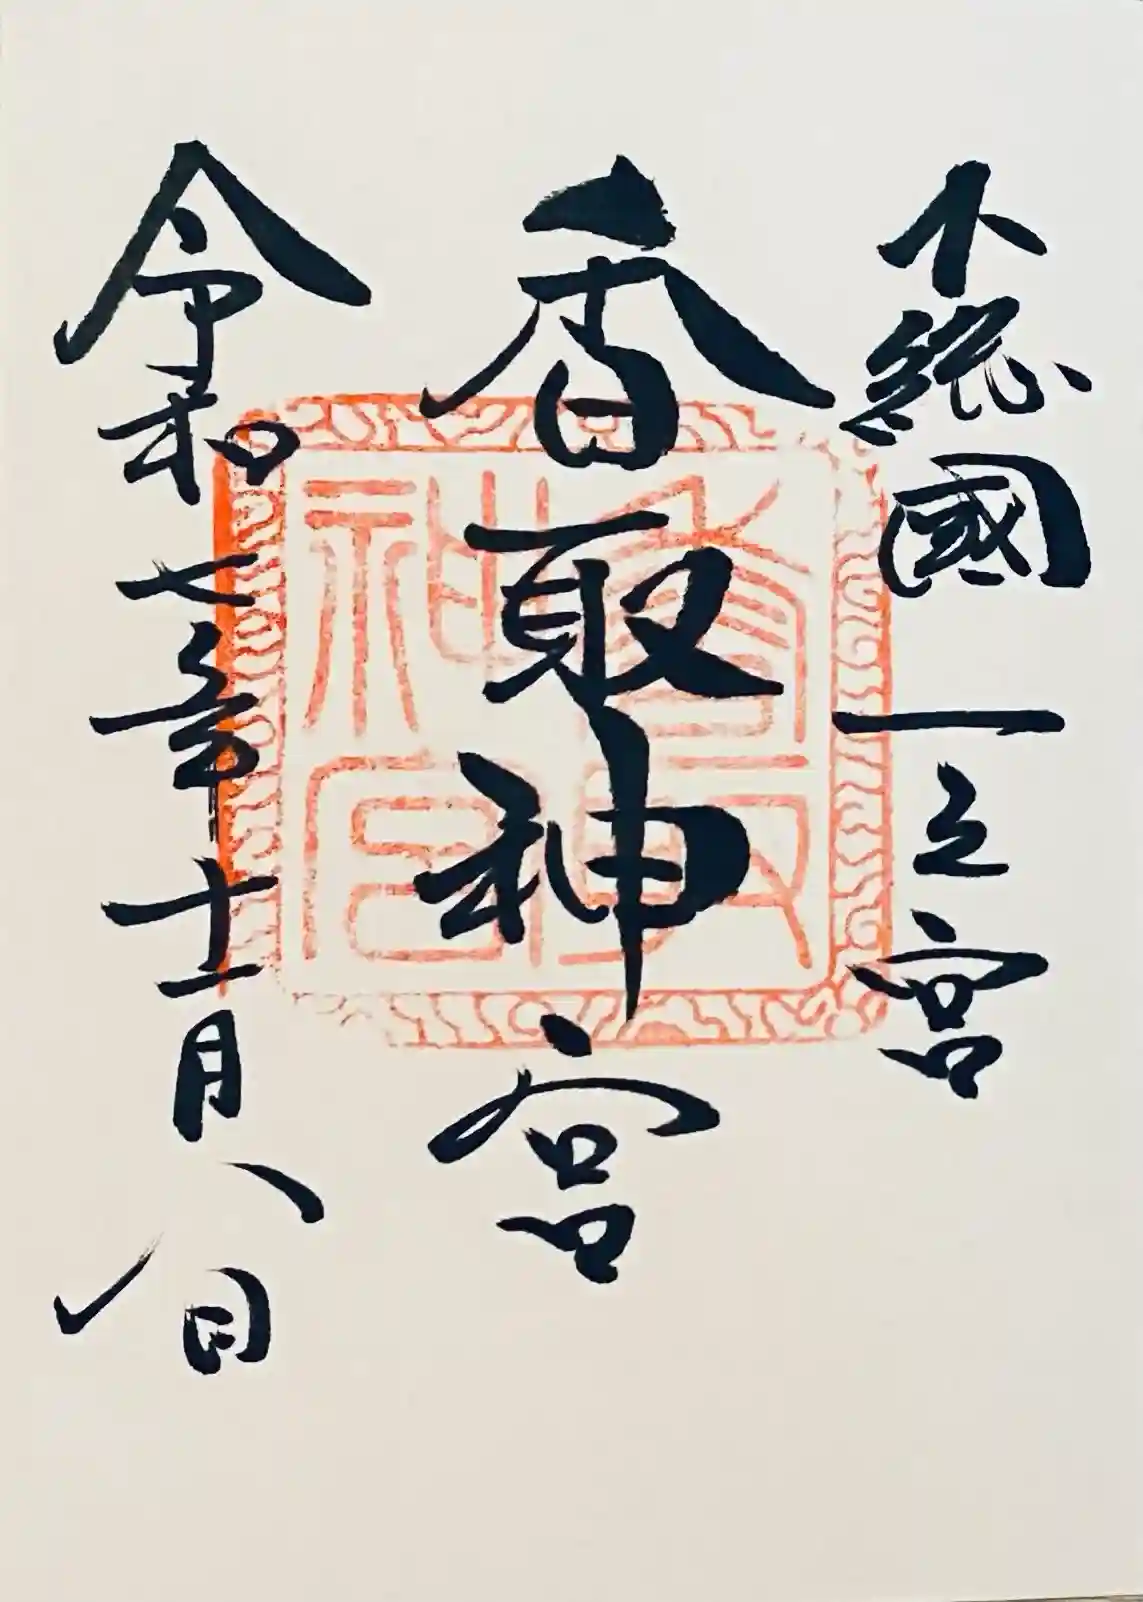 下総國一之宮
香取神宮
令和七年十一月八日
香取
神宮